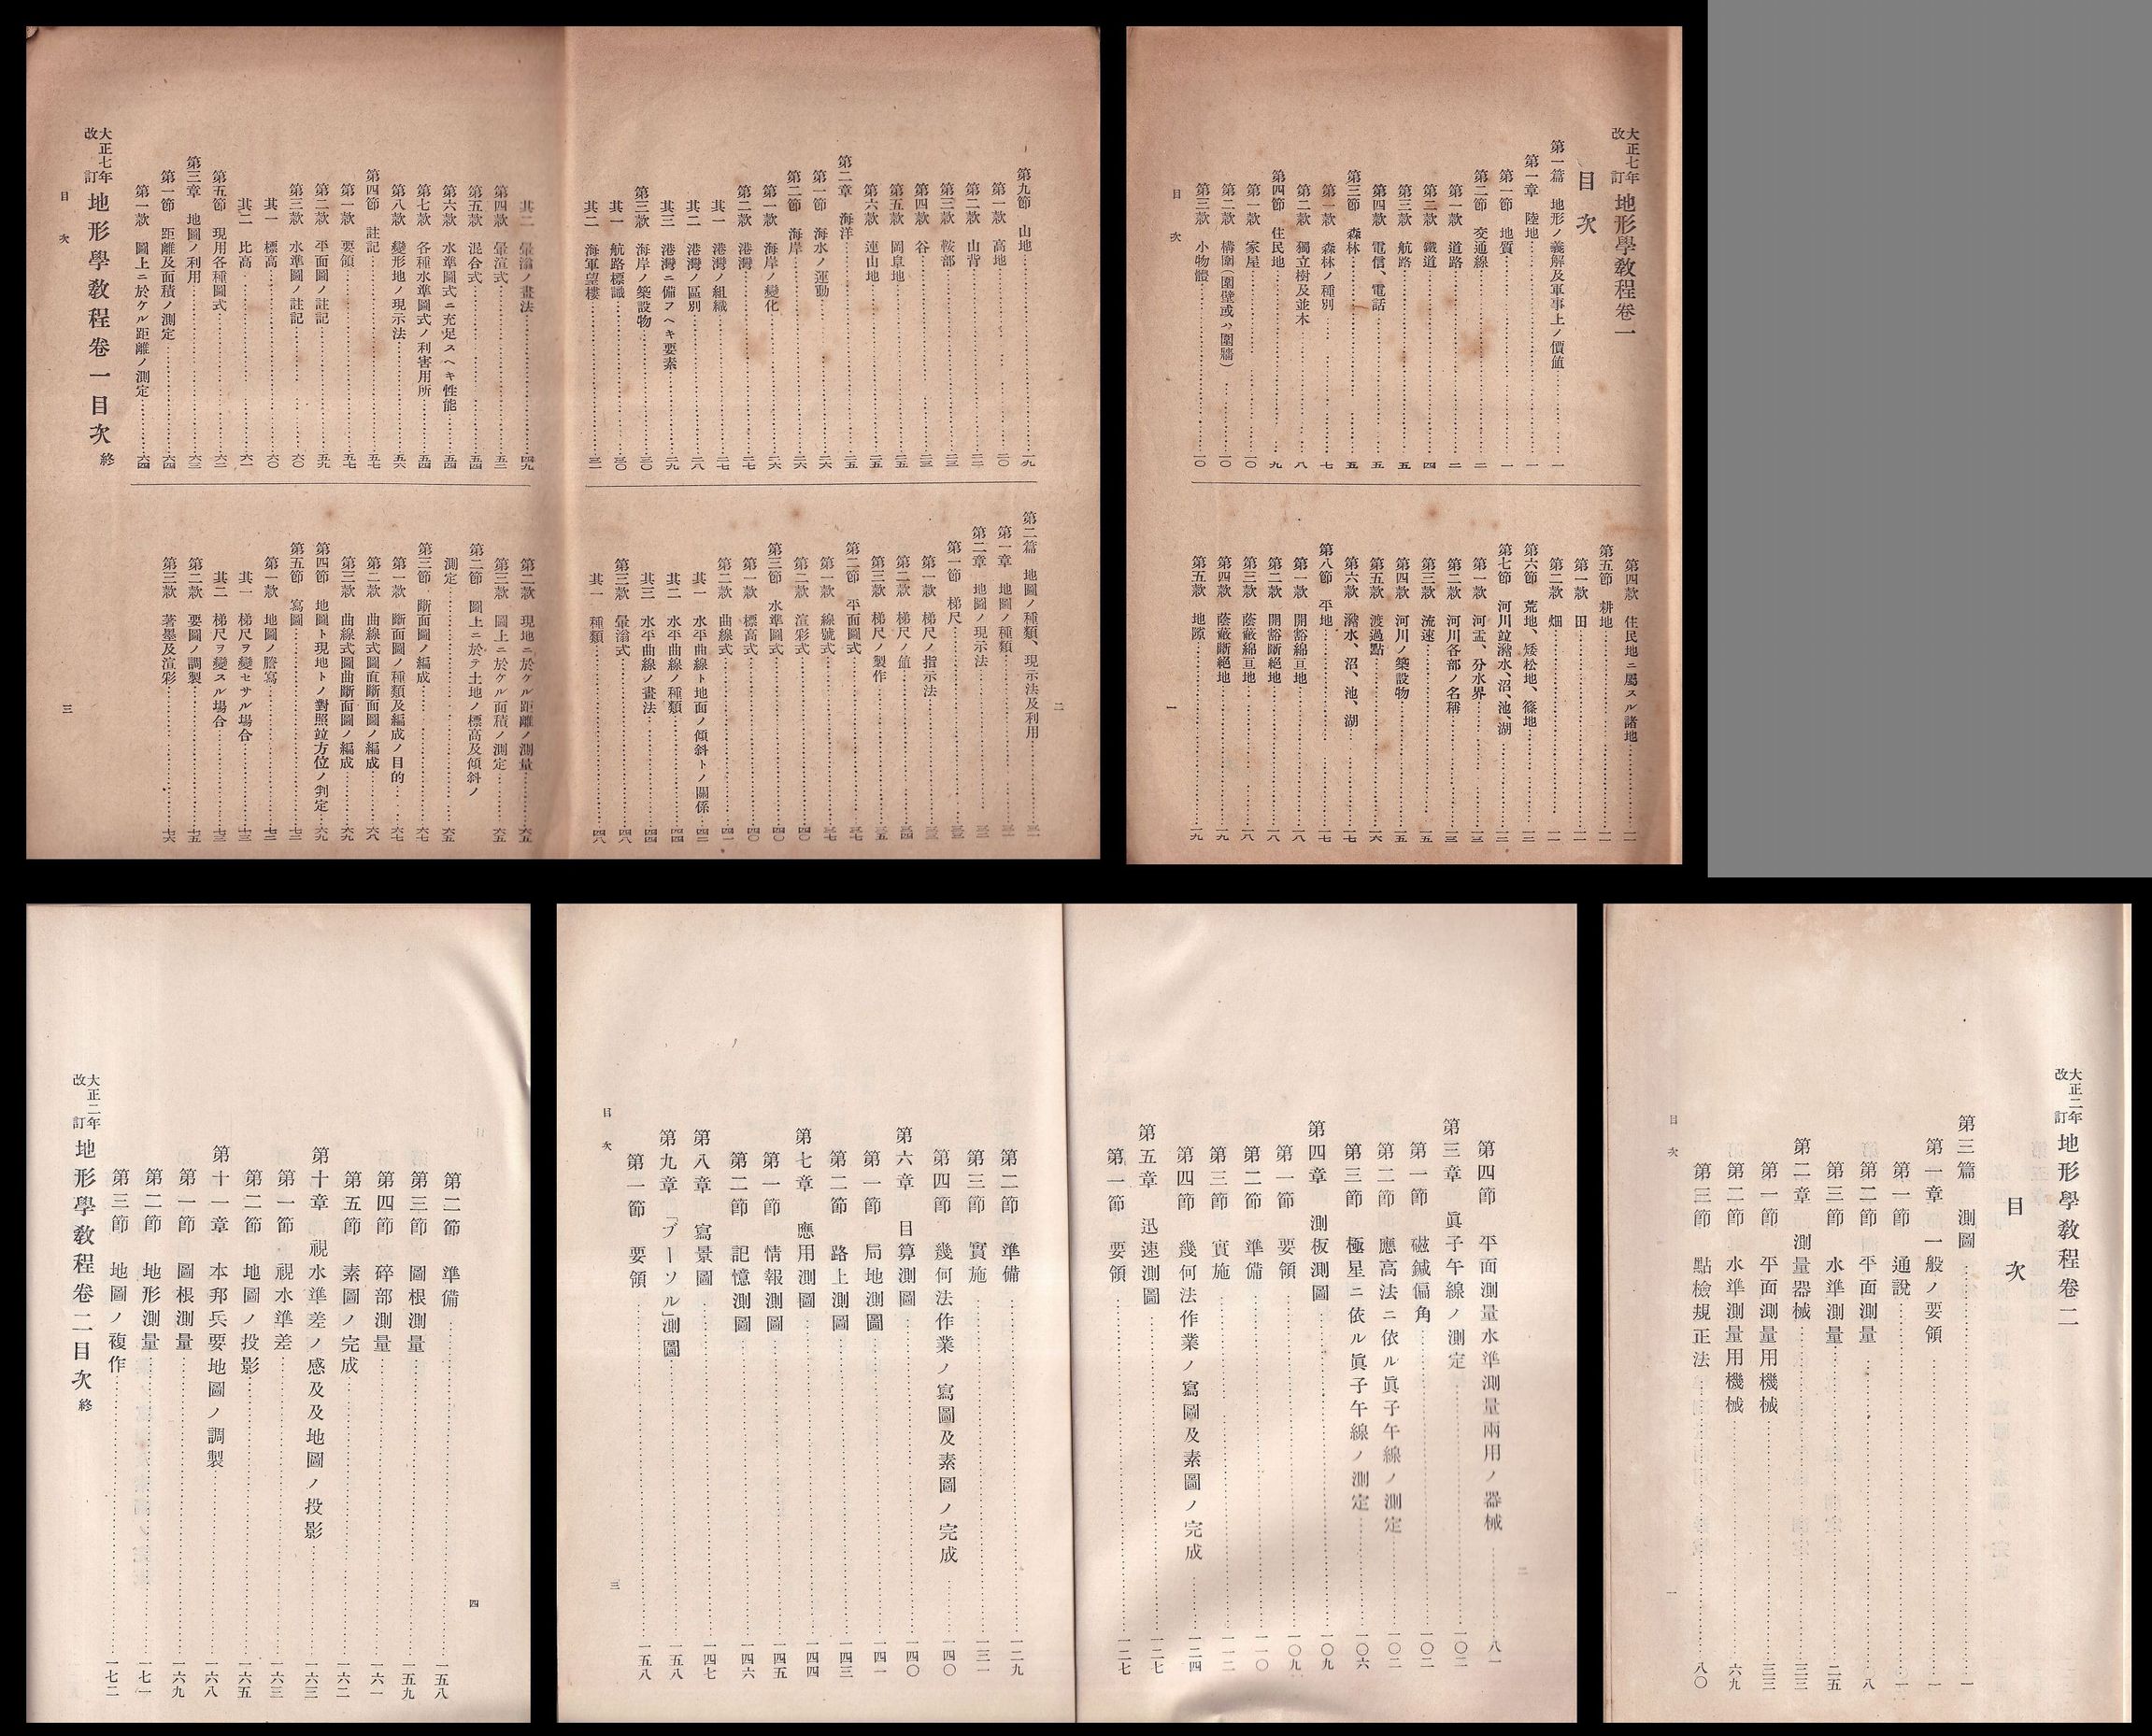 大正七年改訂 地形學教程卷一
目次
第一篇 地形ノ義解及軍事上ノ價値……一
第一章 陸地……一
第一節 地質……一
第二節 交通線……二
第一款 道路……二
第二款 鐵道……四
第三款 航路……五
第四款 電信、電話……五
第三節 森林……五
第一款 森林ノ種別……七
第二款 獨立樹及並木……八
第四節 住民地……九
第一款 家屋……一〇
第二款 構圍(圍壁或ハ圍牆)……一〇
第三款 小物體……一〇
目次
第四款 住民地ニ屬スル諸地……一一
第五節 耕地……一一
第一款 田……一一
第二款 畑……一一
第六節 荒地、矮松地、篠地……一二
第七節 河川竝瀦水、沼、池、湖……一二
第一款 河盂、分水界……一三
第二款 河川各部ノ名稱……一三
第三款 流速……一五
第四款 河川ノ築設物……一五
第五款 渡過點……一六
第六款 瀦水、沼、池、湖……一七
第八節 平地……一七
第一款 開豁綿亘地……一八
第二款 開豁斷絕地……一八
第三款 蔭蔽綿亘地……一八
第四款 蔭蔽斷絕地……一九
第五款 地隙……一九
一
第九節 山地……一九
第一款 高地……二〇
第二款 山背……二二
第三款 鞍部……二三
第四款 谷……二三
第五款 岡阜地……二五
第六款 連山地……二五
第二章 海洋……二五
第一節 海水ノ運動……二六
第二節 海岸……二六
第一款 海岸ノ變化……二六
第二款 港灣……二七
其一 港灣ノ組織……二七
其二 港灣ノ區別……二八
其三 港灣ニ備フヘキ要素……二九
第三款 海岸ノ築設物……三〇
其一 航路標識……三〇
其二 海軍望樓……三一
二
第二篇 地圖ノ種類、現示法及利用……三一
第一章 地圖ノ種類……三一
第二章 地圖ノ現示法……三二
第一節 梯尺……三三
第一款 梯尺ノ指示法……三三
第二款 梯尺ノ値……三四
第三款 梯尺ノ製作……三五
第二節 平面圖式……三七
第一款 線號式……三七
第二款 渲彩式……四〇
第三節 水準圖式……四〇
第一款 標高式……四〇
第二款 曲線式……四一
其一 水平曲線ト地面ノ傾斜トノ關係……四二
其二 水平曲線ノ種類……四四
其三 水平曲線ノ畫法……四四
第三款 暈滃式……四八
其一 種類……四八
其二 暈滃ノ畫法……四九
第四款 暈渲式……五二
第五款 混合式……五四
第六款 水準圖式ニ充足スヘキ性能……五四
第七款 各種水準圖式ノ利害用所……五四
第八款 變形地ノ現示法……五六
第四節 註記……五七
第一款 要領……五七
第二款 平面圖ノ註記……五九
第三款 水準圖ノ註記……六〇
其一 標高……六〇
其二 比高……六一
第五節 現用各種圖式……六二
第三章 地圖ノ利用……六三
第一節 距離及面積ノ測定……六四
第一款 圖上ニ於ケル距離ノ測定……六四
大正七年改訂 地形學教程卷一目次終
目次
第二款 現地ニ於ケル距離ノ測量……六五
第三款 圖上ニ於ケル面積ノ測定……六五
第二節 圖上ニ於テ土地ノ標高及傾斜ノ
測定……六五
第三節 斷面圖ノ編成……六七
第一款 斷面圖ノ種類及編成ノ目的……六七
第二款 曲線式圖直斷面圖ノ編成……六八
第三款 曲線式圖曲斷面圖ノ編成……六九
第四節 地圖ト現地トノ對照竝方位ノ判定……六九
第五節 寫圖……七二
第一款 地圖ノ謄寫……七二
其一 梯尺ヲ變セサル場合……七三
其二 梯尺ヲ變スル場合……七三
第二款 要圖ノ調製……七五
第三款 著墨及渲彩……七六
三
大正二年改訂 地形學教程卷二
目次
第三篇 測圖……一
第一章 一般ノ要領……一
第一節 通說……一
第二節 平面測量……八
第三節 水準測量……二五
第二章 測量器械……三三
第一節 平面測量用機械……三三
第二節 水準測量用機械……六九
第三節 點檢規正法……八〇
目次
一
第四節 平面測量水準測量兩用ノ器械……八一
第三章 眞子午線ノ測定……一〇二
第一節 磁鍼偏角……一〇二
第二節 應高法ニ依ル眞子午線ノ測定……一〇二
第三節 極星ニ依ル眞子午線ノ測定……一〇六
第四章 測板測圖……一〇九
第一節 要領……一〇九
第二節 準備……一一〇
第三節 實施……一一二
第四節 幾何法作業ノ寫圖及素圖ノ完成……一二四
第五章 迅速測圖……一二七
第一節 要領……一二七
二
第二節 準備……一二九
第三節 實施……一三一
第四節 幾何法作業ノ寫圖及素圖ノ完成……一四〇
第六章 目算測圖……一四〇
第一節 局地測圖……一四一
第二節 路上測圖……一四三
第七章 應用測圖……一四四
第一節 情報測圖……一四五
第二節 記憶測圖……一四六
第八章 寫景圖……一四七
第九章 「ブーソル」測圖……一五八
第一節 要領……一五八
目次
三
第二節 準備……一五八
第三節 圖根測量……一五九
第四節 碎部測量……一六一
第五節 素圖ノ完成……一六二
第十章 視水準差ノ感及及地圖ノ投影……一六三
第一節 視水準差……一六三
第二節 地圖ノ投影……一六五
第十一章 本邦兵要地圖ノ調製……一六八
第一節 圖根測量……一六九
第二節 地形測量……一七一
第三節 地圖ノ複作……一七二
大正二年改訂 地形學教程卷二目次終
四